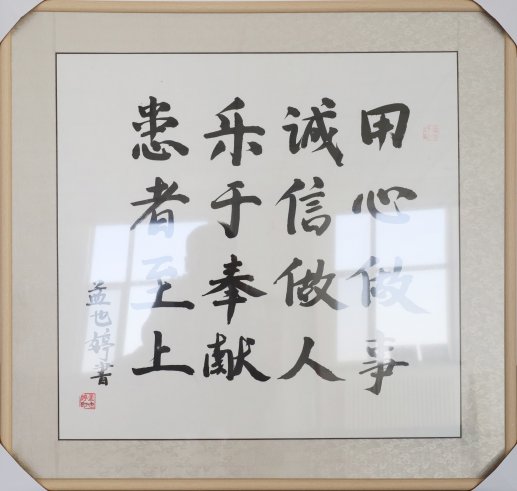 用心做事
诚信做人
乐于奉献
患者至上
孟也婷书